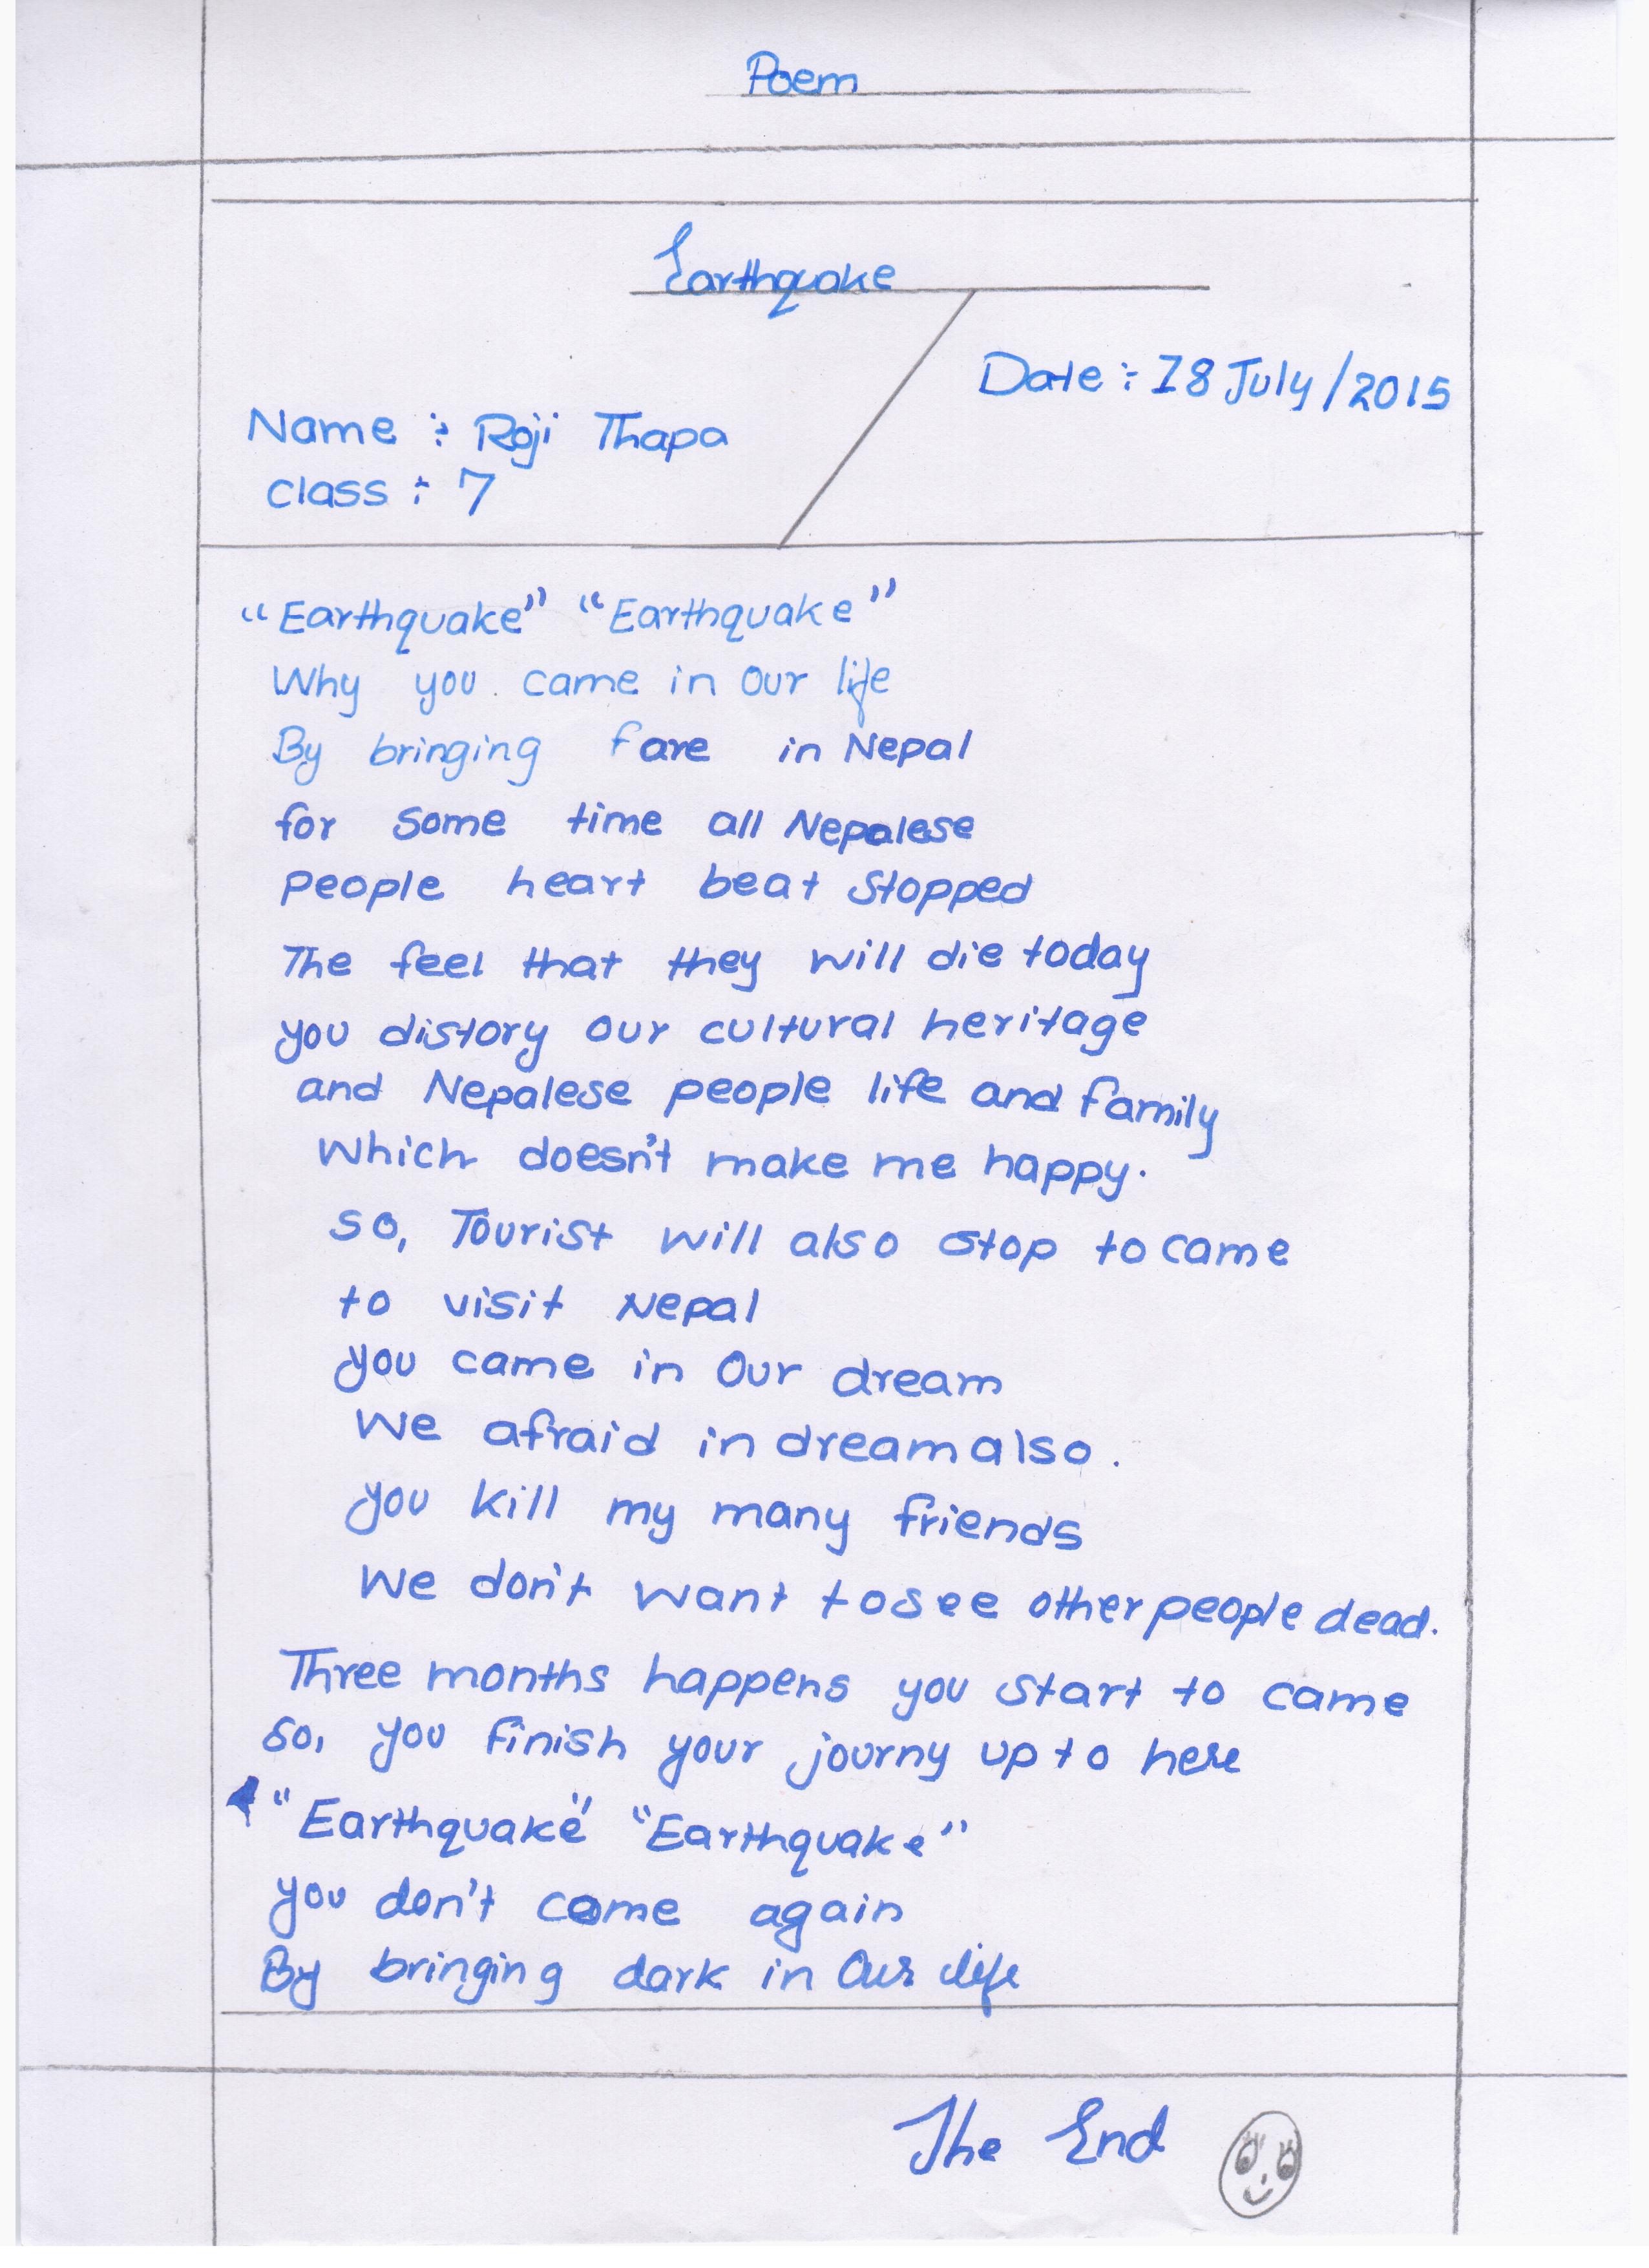 Poem
Earthquake
Date : 18 July/2015
Name : Roji Thapa
class : 7
"Earthquake" "Earthquake"
Why you came in our life
By bringing fare in Nepal
for some time all Nepalese
people heart beat stopped
The feel that they will die today
you distory our cultural heritage
and Nepalese people life and family
which doesn't make me happy.
so, Tourist will also stop to came
to visit Nepal
you came in our dream
We afraid in dream also.
you kill my many friends
We don't want to see other people dead.
Three months happens you start to came
so, you finish your journy up to here
"Earthquake" "Earthquake"
you don't come again
By bringing dark in our life
The End